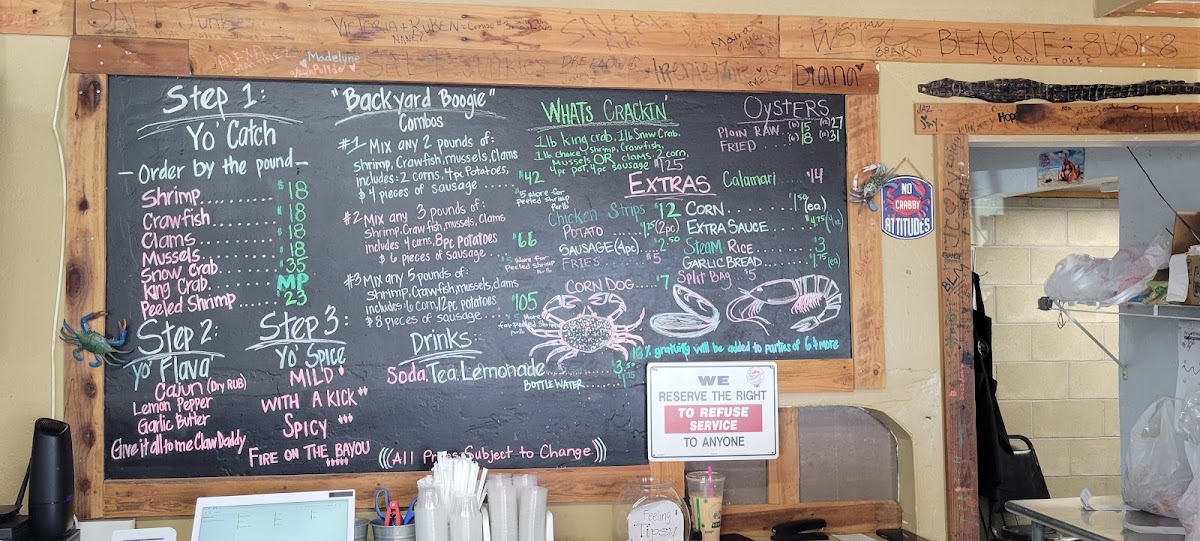 Step 1:
Yo' Catch
-Order by the pound-
Shrimp........ $18
Crawfish....... $18
Clams......... $18
Mussels....... $18
Snow Crab...... $35
King Crab...... MP
Peeled Shrimp..... $23
Step 2:
Yo' Flava
Cajun (Dry RUB)
Lemon Pepper
Garlic Butter
Give it all to me Claw Daddy
Step 3:
Yo' Spice
MILD
WITH A KICK
SPICY
FIRE ON THE BAYOU
"Backyard Boogie"
Combos
#1 Mix any 2 pounds of:
shrimp, Crawfish, mussels, Clams
includes: 2 corns, 4pc Potatoes,
& 4 pieces of sausage ...... $42
$5 more for
Peeled Shrimp
Per lb
#2 Mix any 3 pounds of:
shrimp, Crawfish, mussels, Clams
includes 4 corns, 8pc potatoes
& 6 pieces of sausage ...... $66
more for
Peeled Shrimp
#3 Mix any 5 pounds of:
shrimp, Crawfish, mussels, clams
& 8 pieces of sausage ...... $105
more
for peeled Shrimp
Drinks:
Soda. Tea. Lemonade
BOTTLE WATER
((All Prices Subject to Change))
WHATS CRACKIN'
1 lb King crab, 1 lb Snow Crab,
1 lb choice / Shrimp, Crawfish,
Mussels OR clams 2 corn,
4pc pot, 4pc sausage $125
EXTRAS
Chicken Strips $12
POTATO ..... (2pc)
SAUSAGE (4pc).. $2.50
FRIES ..... $5
CORN DOG....... $7
OYSTERS
PLAIN RAW (6) 15 (12) 27
FRIED ... (6) 18 (12) 31
Calamari ..... $14
CORN ......... (ea)
EXTRA SAUCE ..... (4oz)
Steam Rice ...... $3
GARLIC BREAD....... (ea)
Split Bag $5
18% gratuity will be added to parties of 6 & more
WE
RESERVE THE RIGHT
TO REFUSE
SERVICE
TO ANYONE
NO
CRABBY
ATTITUDES
Feeling
Tipsy
Madelyne
Diana
BEAOKIE